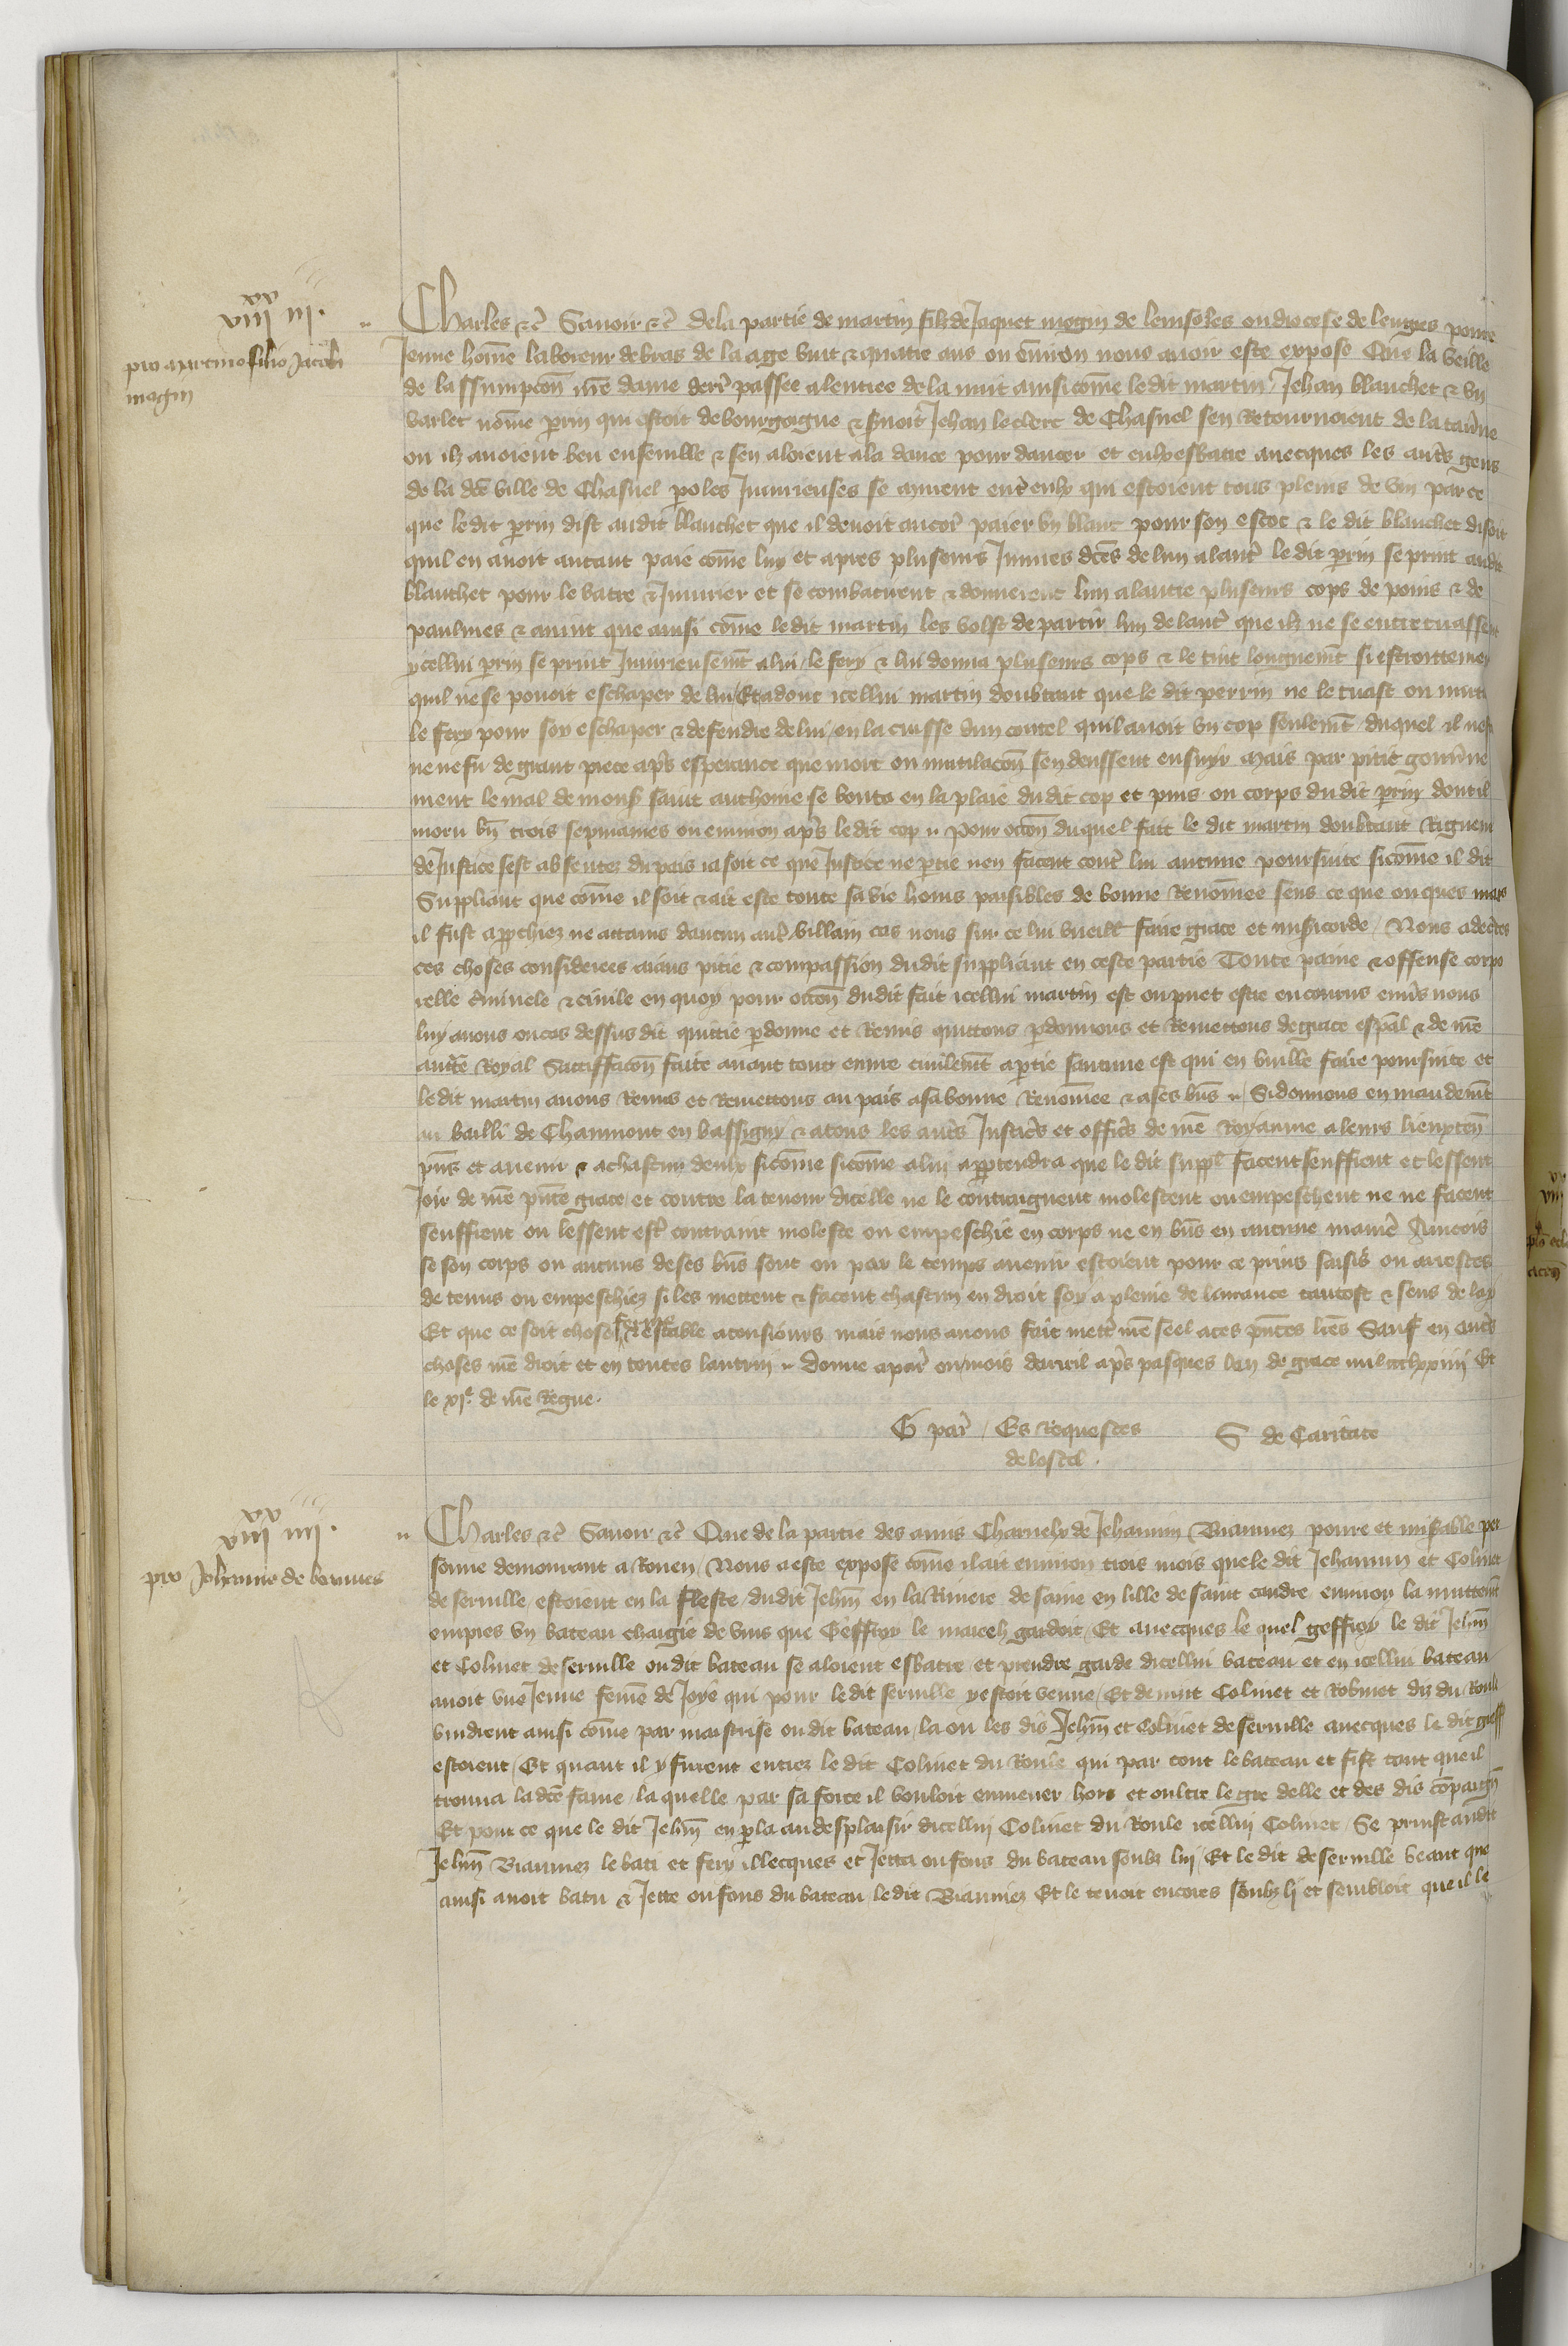 viii xx iii.
pro martino filio Jacobi
magin
Charles &c Savoir &c de la partie de martin filz de Jaquet mogin de lensoles ou diocese de lengres povre
Jenne home laboreur de bras de la age vint & quatre ans ou environ nous avoir este expose Que la veille
de lassumpcon nre dame derr passee a lentree de la nuit ainsi come le dit martin Jehan blanchet & un
varlet nome perrin qui estoit de bourgoigne & servoit Jehan le clerc de Chasnel sen retournoient de la taverne
ou ilz avoient beu ensemble & sen aloient a la dance pour dancer et eulx esbatre avecques les autrs gens
de la dce ville de Chasnel poles Injurieuses se murent entr eulx qui estoient tous pleins de vin par ce
que le dit prin dist audit blanchet que il devoit encor paier un blanc pour son escot & le dit blanchet disoit
quil en avoit autant paie come luy et apres pluseurs Injures dces de lun a lautr le dit prin se print audit
blanchet pour le batre & Injurier et se combatirent & donnerent lun a lautre pluseurs cops de poins & de
paulmes & avint que ainsi come le dit martin les volst departir lun de lautr que ilz ne se entretuassent
ycellui prin se print Injurieusemt a lui le fery & lui donna pluseurs cops & le tint longuemt si estroittement
quil ne se povoit eschaper de lui Et adonc icellui martin doubtant que le dit perrin ne le tuast ou mut
le fery pour soy eschaper & defendre de lui en la cuisse dun coutel quil avoit un cop seulemt duquel il nest
ne ne fu de grant piece aps esperance que mort ou mutilacon sen deussent ensuyr mais par petit gouverne
ment le mal de mons saint anthoine se bouta en la plaie dudit cop et puis ou corps dudit prin dont il
moru bn trois sepmaines ou environ aps le dit cop Pour occon duquel fait le dit martin doubtant Rigueur
de Justice sest absentez du pais ja soit ce que Justice ne prtie nen facent contr lui aucune poursuite sicome il dit
Suppliant que come il soit & ait este toute sa vie homs paisibles de bonne Renomee sens ce que onques mais
il fust approchiez ne attains daucun autr villain cas nous sur ce lui vueill faire grace et misicorde Nous adecrtes
ces choses considerees aians pitie & compassion dudit suppliant en ceste partie Toute paine & offense corpo
relle criminele & civile en quoy pour occon dudit fait icellui martin est ou puet estre encourus envrs nous
luy avons ou cas dessus dit quittie pdonne et Remis quittons pdonnons et Remettons de grace espal & de nre
auctte Royal Satisffacon faite avant tout euvre civilemt a prtie saucune est qui en vuille faire poursuite et
le dit martin avons Remis et Remettons au pais a sa bonne Renomee & a ses bns Si donnons en mandemt
au bailli de Chaumont en bassigny & a tous les autrs Justicrs et officrs de nre Royaume a leurs lieuxten
pns et avenir & a chascun deulx sicome sicome a lui apptendra que le dit suppl facent seuffrent et lessent
Joir de nre pnte grace et contre la teneur dicelle ne le contraignent molestent ou empeschent ne ne facent
seuffrent ou lessent estr contraint moleste ou empeschie en corps ne en bns en aucune manier Aincois
se son corps ou aucuns de ses bns sont ou par le temps avenir estoient pour ce prins saisis ou arrestes
detenus ou empeschiez si les mettent & facent chascun en droit soy a pleine delivrance tantost & sens delay
Et que ce soit chose ferme & estable a tousiours mais nous avons fait mettr nre seel a ces pntes lres Sauf en autrs
choses nre droit et en toutes lautrui Donne a par ou mois davril aps pasques lan de grace mil ccclxxiiii Et
le xie de nre Regne.
G par Es Requestes
de lostel.
S de Caritate
viii xx iiii.
pro Johanne de beaunes
Charles &c Savoir &c Que de la partie des amis Charnelx de Jehannin Biaunez povre et misable per
sonne demourant a Rouen Nous a este expose come il ait environ trois mois que le dit Jehannin et Colinet
de serville estoient en la fleste dudit Jehn en la Riviere de saine en lille de saint candre environ la nuittant
empres un bateau chargie de vins que Geffroy le marech gardoit Et avecques le quel geffroy le dit Jehn
et Colinet de serville ou dit bateau se aloient esbatre et prendre garde dicellui bateau et en icellui bateau
avoit une Jenne feme de Joye qui pour le dit serville y estoit venue Et de nuit Colinet et Robinet diz du Roule
vindrent ainsi come par maistrise ou dit bateau la ou les dis Jehn et Colinet de serville avecques le dit geff
estoient Et quant il y furent entrez le dit Colinet du Roule qui par tout le bateau et fist tant que il
trouva la dce fame la quelle par sa force il vouloit enmener hors et oultre le gre delle et des dis compaign
Et pour ce que le dit Jehn en prla au desplaisir dicellui Colinet du Roule icellui Colinet Se prinst audit
Jehn Biaunez le bati et fery illecques et Jetta ou fons du bateau soubz lui Et le dit de serville veant que
ainsi avoit batu & Jette ou fons du bateau le dit Biaunez Et le tenoit encores soubz li et sembloit que il le